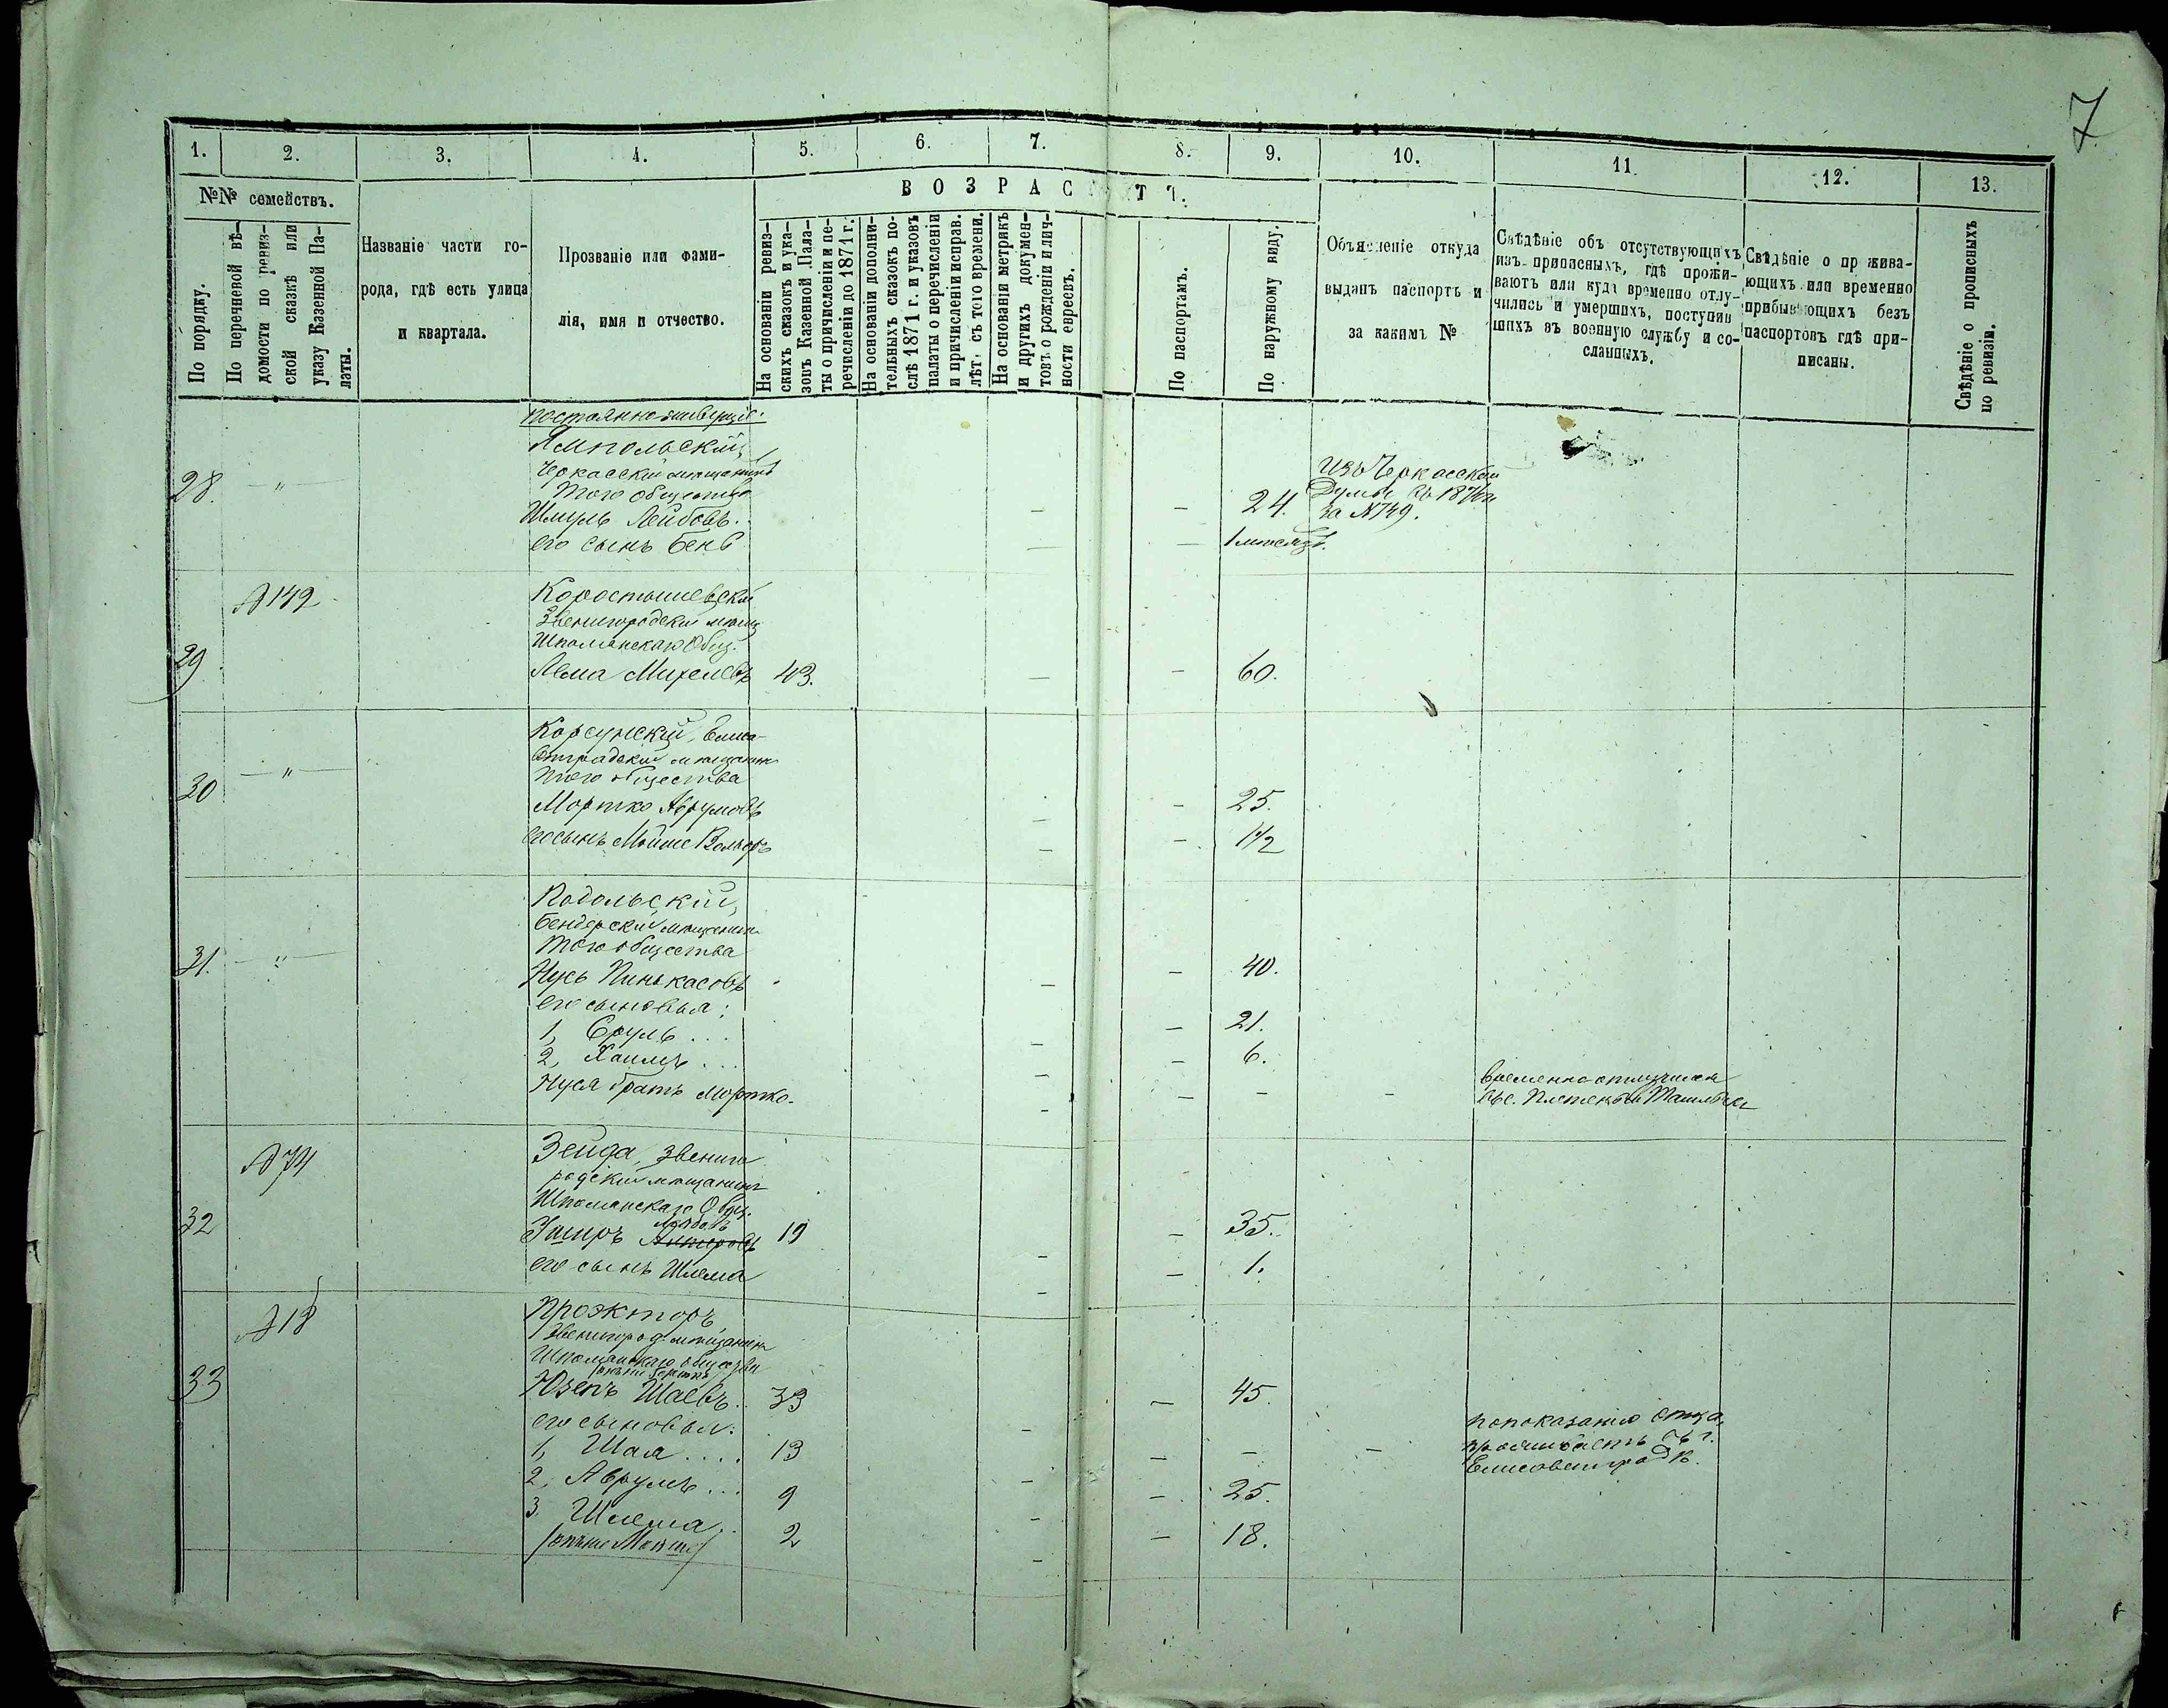 7
1. 2. 3. 4. 5. 6. 7. 8. 9. 10. 11. 12. 13.
№№ семействъ.
По порядку.
По перечневой вѣ-
домости по ревиз-
ской сказкѣ или
указу Казенной Па-
латы.
Названіе части го-
рода, гдѣ есть улица
и квартала.
Прозваніе или фами-
лія, имя и отчество.
ВОЗРАСТЪ.
На основаніи ревиз-
скихъ сказокъ и ука-
зовъ Казенной Пала-
ты о причисленіи и пе-
речисленіи до 1871 г.
На основаніи дополни-
тельныхъ сказокъ по-
слѣ 1871 г. и указовъ
палаты о перечисленіи
и причисленіи исправ.
лѣтъ съ того времени.
На основаніи метрикъ
и другихъ докумен-
товъ о рожденіи и лич-
ности евреевъ.
По паспортамъ.
По наружному виду.
Объясненіе откуда
выданъ паспортъ и
за какимъ №
Свѣдѣніе объ отсутствующихъ
изъ приписныхъ, гдѣ прожи-
ваютъ или куда временно отлу-
чились и умершихъ, поступив
шихъ въ военную службу и со-
сланныхъ.
Свѣдѣніе о пр жива-
ющихъ или временно
прибывающихъ безъ
паспортовъ гдѣ при-
писаны.
Свѣдѣніе о прописныхъ
по ревизіи.
постоянно живущіе.
Ямпольскій,
Черкасскій мѣщанинъ
того общества
28. — " — Шмуль Лейбовъ. — — 24.
Изъ Черкасской
Думы въ 1874
за №749.
его сынъ Бенъ — — 1 мѣсяцъ.
№149 Коростышевскій
Звенигородскій мѣщ
Шполянскаго Общ.
29 Лема Михелевъ 43. — — 60.
Корсунскій, Елиса-
ветградскій мѣщанинъ
того общества
30 — " — Мортко Аврумовъ — — 25.
его сынъ Мойше Вольфъ — — 1 1/2
Подольскій,
Бендерскій мѣщанинъ
того общества
31. — " — Нусъ Пинькасовъ — — 40.
его сыновья:
1, Сруль ... — — 21.
2, Хаимъ ... — — 6.
Нуся братъ Мортко. — — — —
временно отлучился
въ с. Плетеный Ташлыкъ
№74 Зейда, звениго
родскій мѣщанинъ
Шполянскаго Общ.
Лейбовъ
32 Ушеръ 19 — — 35.
его сынъ Шлема — — 1.
№18 Проэкторъ
Звенигород. мѣщанинъ
Шполянскаго общества
33 Юзепъ Шаевъ. 33 — — 45.
его сыновья:
1, Шая .... 13 — — — —
по показанію отца,
проживаетъ въ г.
Елисаветградѣ.
2, Аврумъ ... 9 — — 25.
3. Шлема .. 2 — — 18.